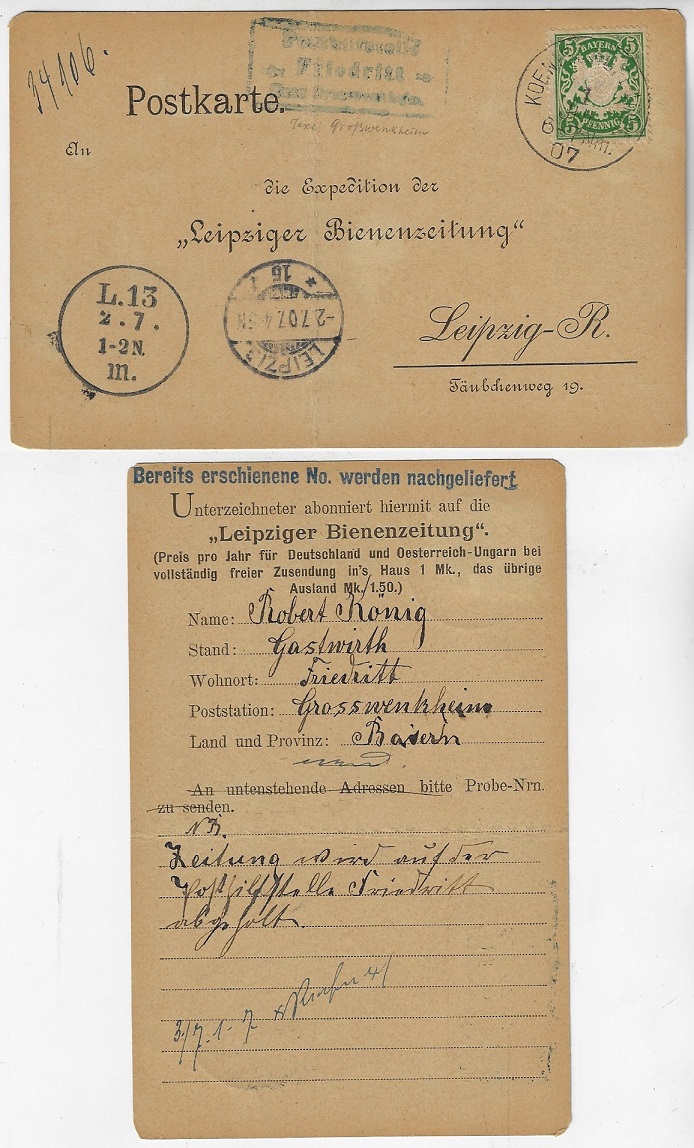 34106.
Friedritt
Postkarte.
Taxe Großwenkheim
BAYERN
5 5
5 PFENNIG 5
KOEN
6 Nm.
07
An
die Expedition der
„Leipziger Bienenzeitung“
L.13
2.7.
1-2N.
m.
LEIPZIG
-2.7.07.4-5N
Leipzig-R.
Täubchenweg 19.
Bereits erschienene No. werden nachgeliefert
Unterzeichneter abonniert hiermit auf die
„Leipziger Bienenzeitung“.
(Preis pro Jahr für Deutschland und Oesterreich-Ungarn bei
vollständig freier Zusendung in's Haus 1 Mk., das übrige
Ausland Mk. 1.50.)
Name: Robert König
Stand: Gastwirth
Wohnort: Friedritt
Poststation: Grosswenkheim
Land und Provinz: Baiern
An untenstehende Adressen bitte Probe-Nrn.
zu senden.
NB.
Zeitung wird auf der
Posthilfstelle Friedritt
abgeholt.
3/7. 1-7